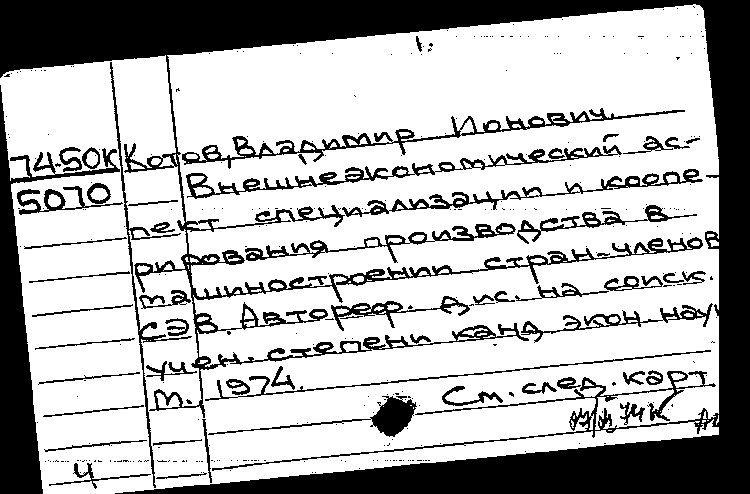 1.
74-50К Котов, Владимир Ионович.
5070 Внешнеэкономический ас-
пект специализации и коопе-
рирования производства в
машиностроении стран-членов
СЭВ. Автореф. дис. на соиск.
учен. степени канд экон наук
М., 1974.
См. след. карт.
4